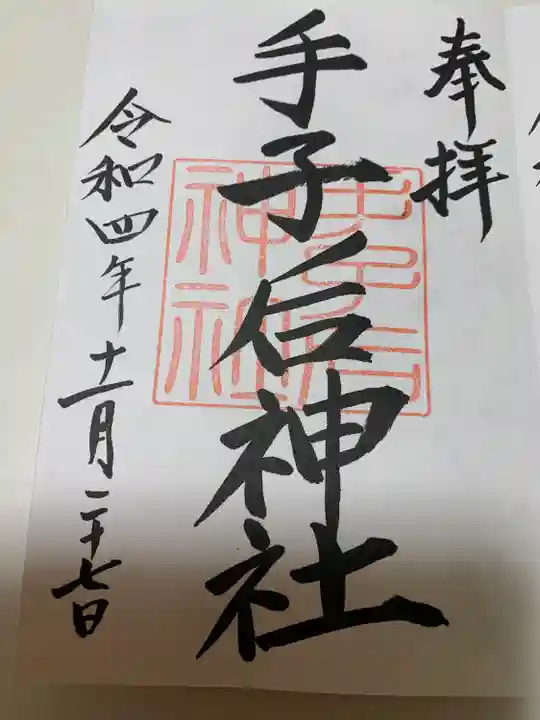 奉拝
手子后神社
手子后神社
令和四年十一月二十七日